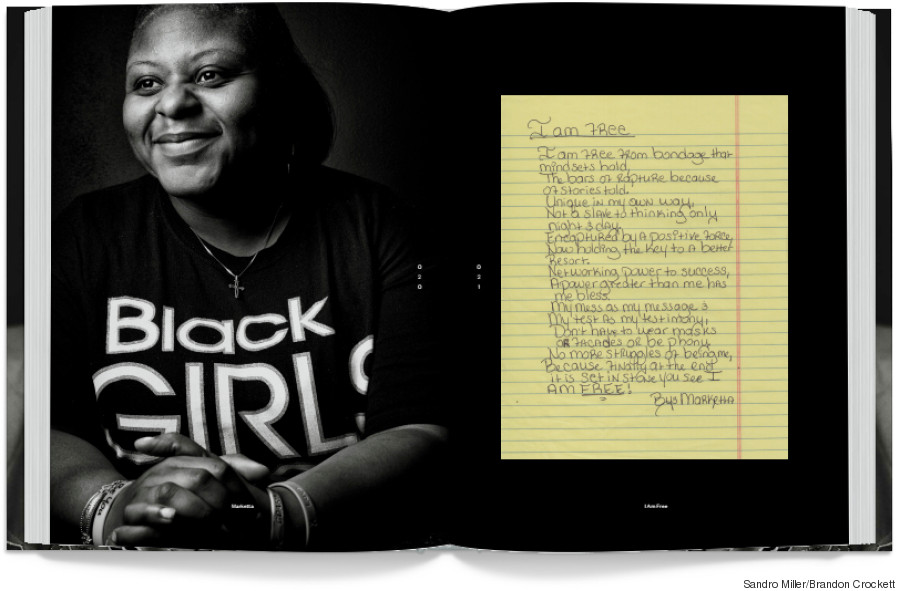 Black
GIRLS
020
021
Marketta
I am FREE
I am FREE from bondage that
mindsets hold,
The bars of RaptuRe because
of stories told.
Unique in my own way,
Not a slave to thinking only
night & day.
Encaptured by A positive force,
Now holding the key to A better
Resort.
Networking power to success,
A power greater than me has
me bless.
My mess as my message &
My test As my testimony,
Don't have to wear masks
OR facades OR be phony.
No more struggles of being me,
Because finally at the end
it is set in stone you see I
AM FREE!
By: Marketta
I Am Free
Sandro Miller/Brandon Crockett